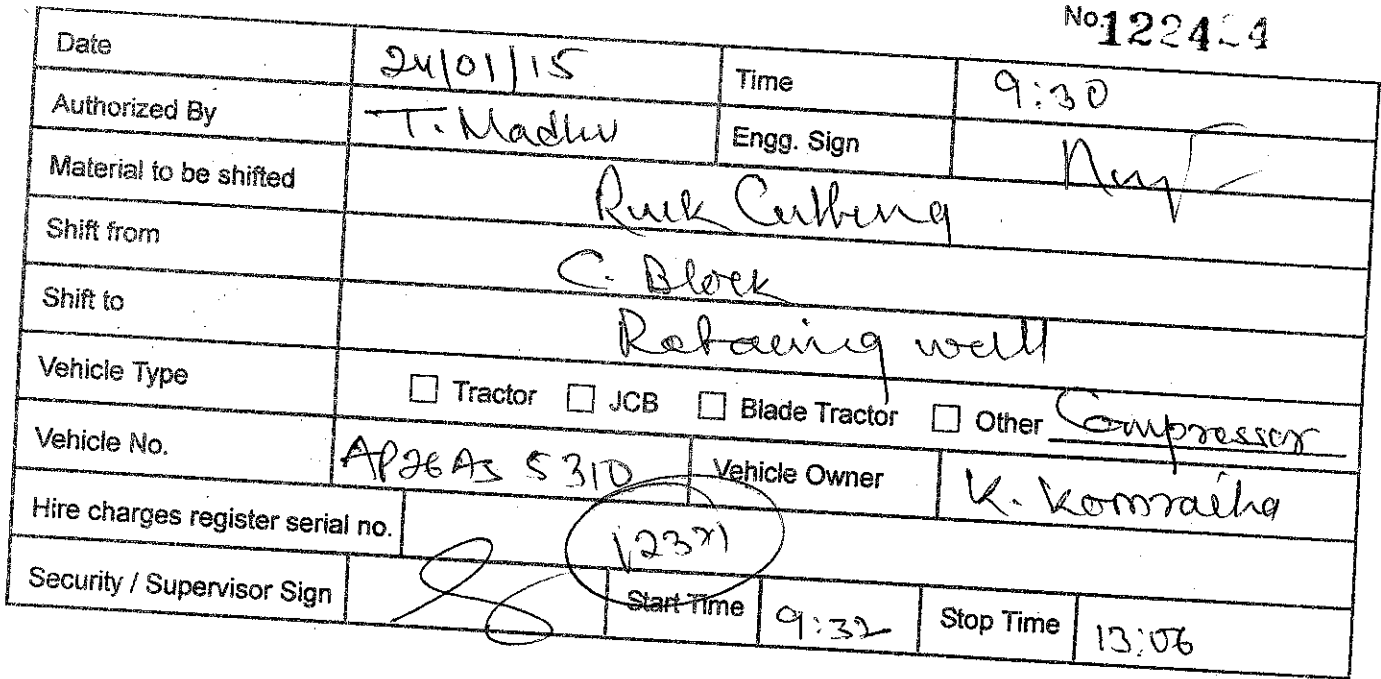 No.
Date 24/01/15 Time 9:30
Authorized By T. Madhu Engg. Sign
Material to be shifted Ruck Cutting
Shift from C. Block
Shift to Retaining wall
Vehicle Type Tractor JCB Blade Tractor Other Compressor
Vehicle No. AP26AS 5310 Vehicle Owner K. Komraiha
Hire charges register serial no.
Security / Supervisor Sign Start Time 9:32 Stop Time 13:06